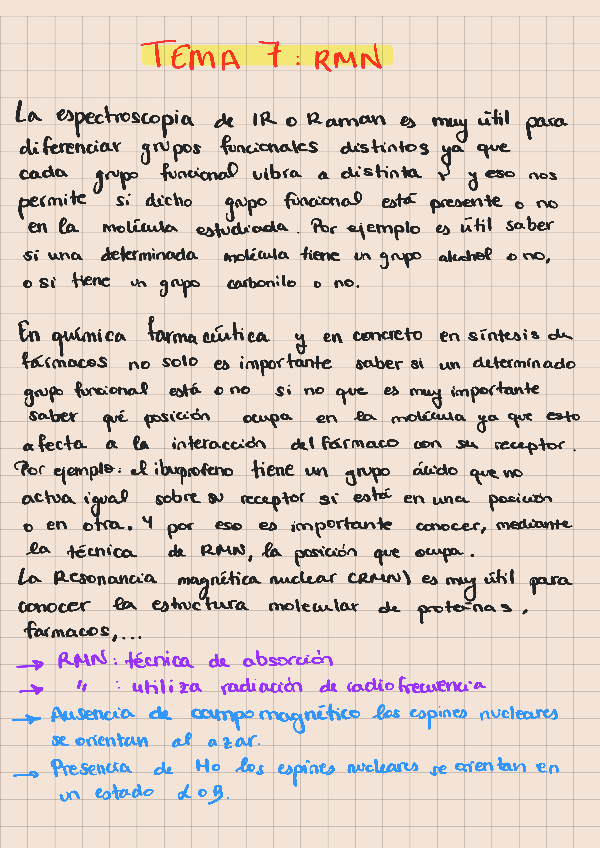 TEMA 7: RMN
La espectroscopia de IR o Raman es muy útil para
diferenciar grupos funcionales distintos ya que
cada grupo funcional vibra a distinta ν y eso nos
permite si dicho grupo funcional está presente o no
en la molécula estudiada. Por ejemplo es útil saber
si una determinada molécula tiene un grupo alcohol o no,
o si tiene un grupo carbonilo o no.
En química farmacéutica y en concreto en síntesis de
fármacos no solo es importante saber si un determinado
grupo funcional está o no si no que es muy importante
saber qué posición ocupa en la molécula ya que esto
afecta a la interacción del fármaco con su receptor.
Por ejemplo: el ibuprofeno tiene un grupo ácido que no
actua igual sobre su receptor si está en una posición
o en otra. Y por eso es importante conocer, mediante
la técnica de RMN, la posición que ocupa.
La Resonancia magnética nuclear (RMN) es muy útil para
conocer la estructura molecular de proteínas,
fármacos,...
→ RMN: técnica de absorción
→ " : utiliza radiación de radiofrecuencia
→ Ausencia de campo magnético los espines nucleares
se orientan al azar.
→ Presencia de H0 los espines nucleares se orientan en
un estado α o β.